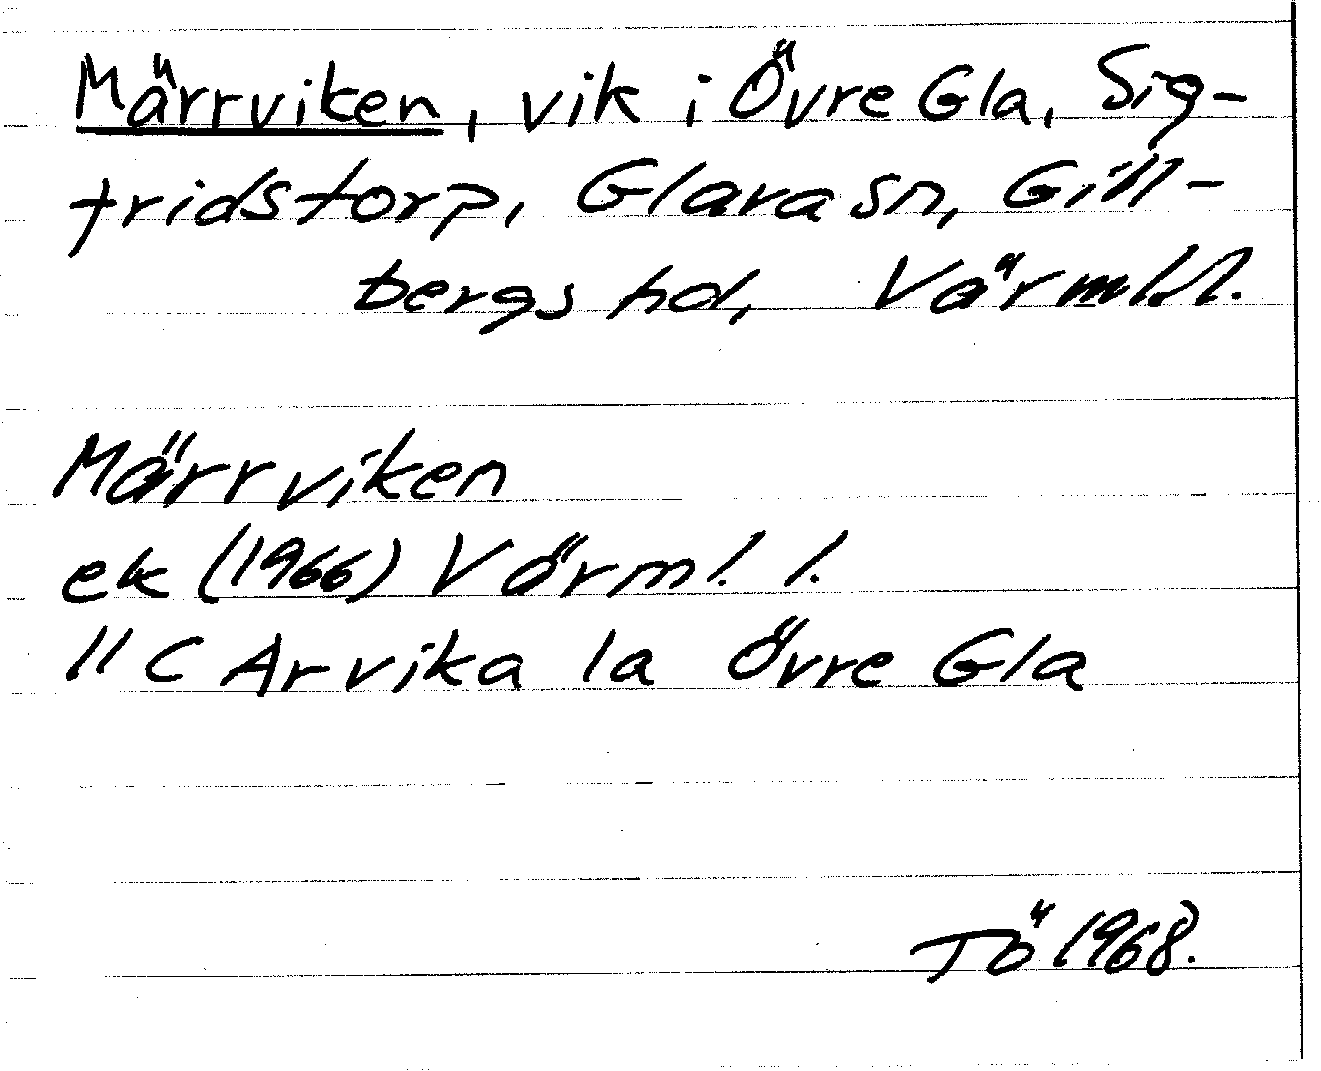 Märrviken, vik i Övre Gla, Sig-
fridstorp, Glava sn, Gill-
bergs hd, Värml.l.
Märrviken
ek (1966) Värml. l.
11 C Arvika 1a Övre Gla
TÖ 1968.